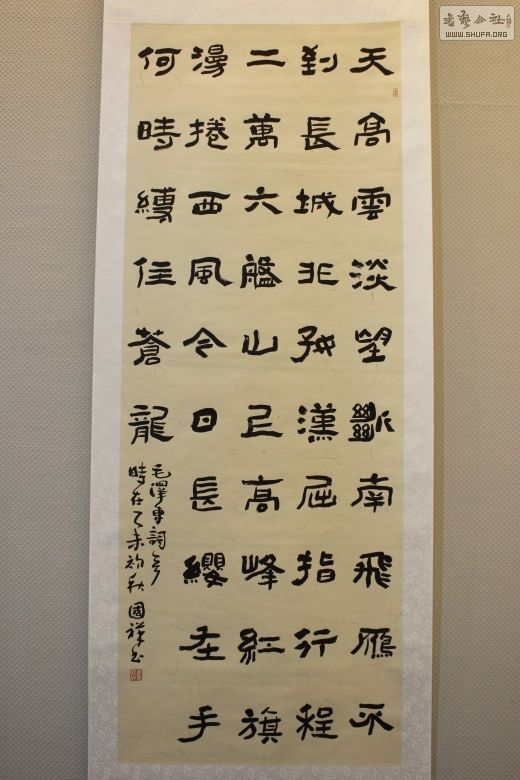 天高雲淡望斷南飛雁不
到長城非好漢屈指行程
二萬六盤山上高峰紅旗
漫捲西風今日長纓在手
何時縛住蒼龍
毛澤東詞
時在乙未初秋 國祥書
書藝公社
WWW.SHUFA.ORG